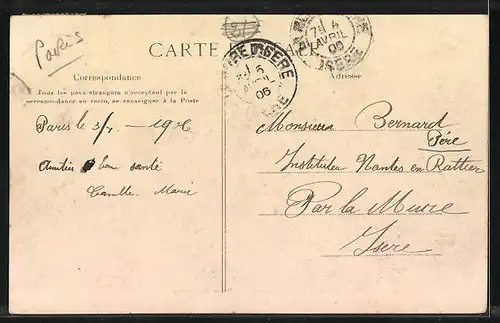 Paris
CARTE
Correspondance
Tous les pays étrangers n'acceptent pas la
correspondance au recto, se renseigner à la Poste
Paris le 3/4 - 1906
Amitiés bonne santé
Camille Marie
ISERE
5
AVRIL
06
4
AVRIL
06
ISERE
Adresse
Monsieur Bernard
Père
Instituteur Nantes en Rattier
Par la Mure
Isère